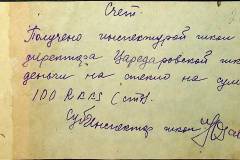 Счет.
Получено инспектурой школ
директора Царедаровской шк
деньги на стекло на сум
100 RKKS (сто).
Субинспектор школ